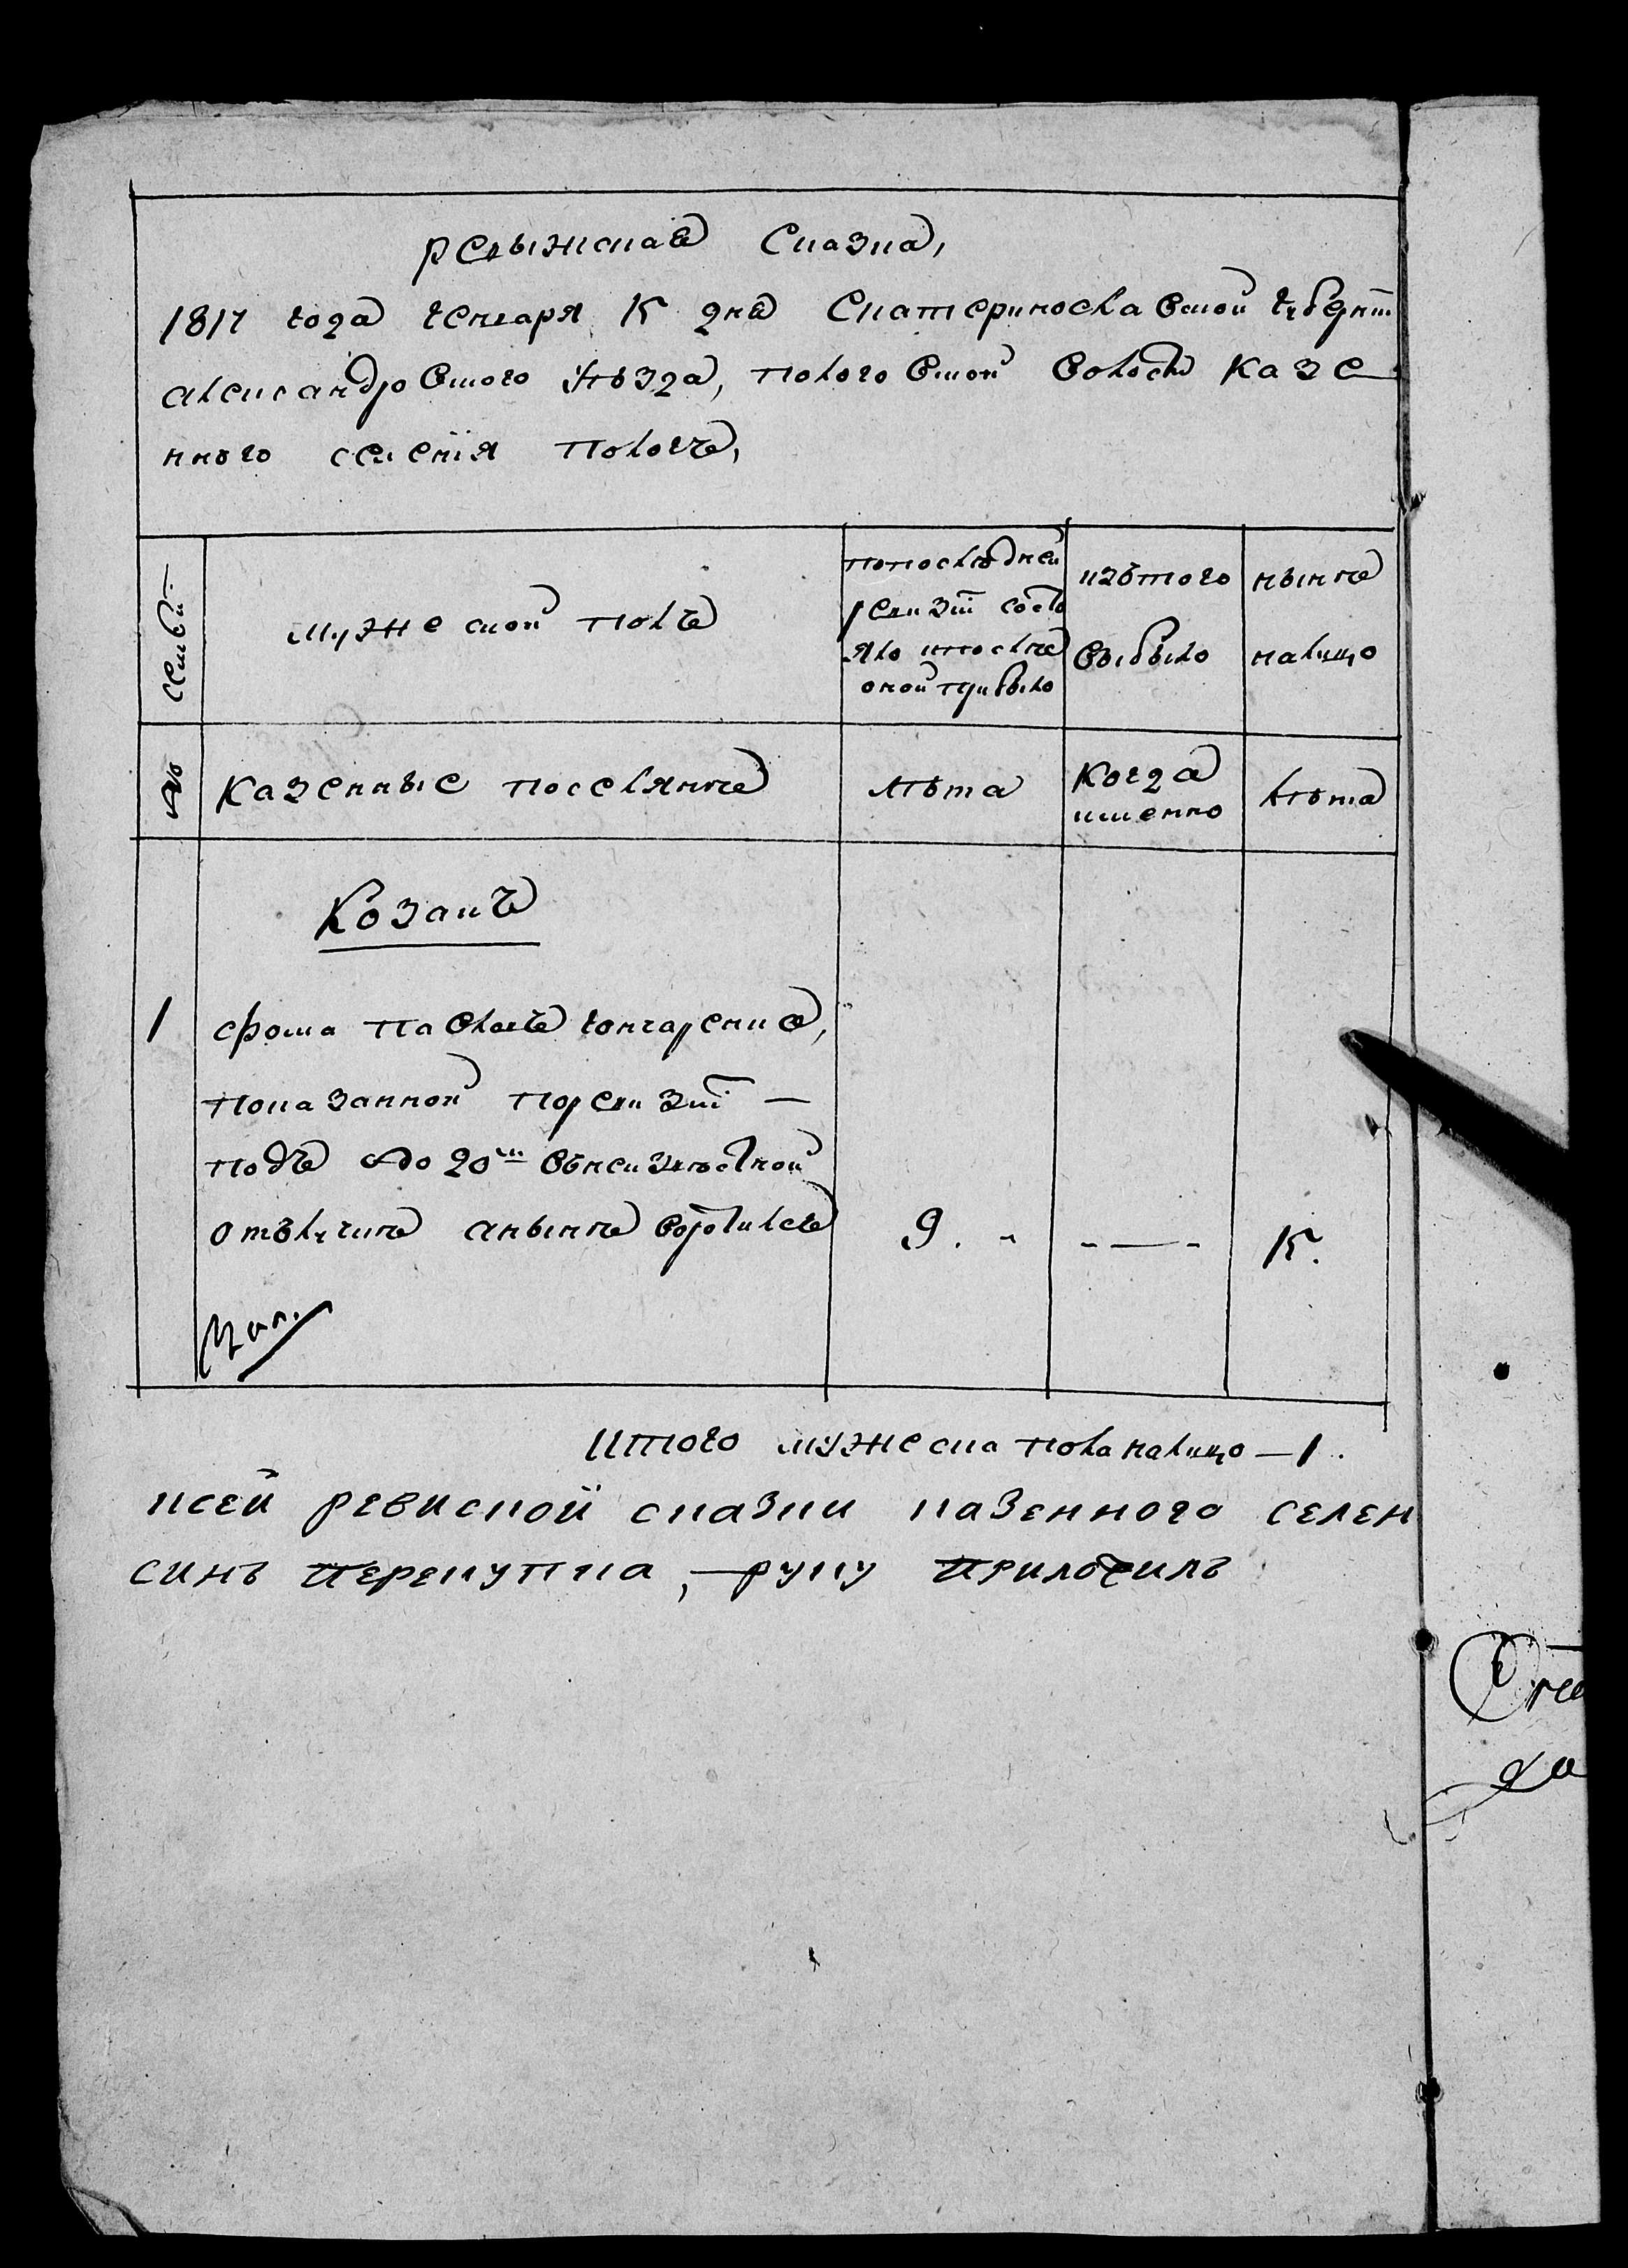 ревыжская Сказка,
1817 года Генваря 15 дня Екатеринославской губерніи
александровского уѣзда, пологовской волости казе
нного селенія пологъ,
семьи
мужеской полъ
попоследней
ревизіи состо
яло ипосле
оной прибыло
изътого
выбыло
нынѣ
налицо
№
казенные поселяне
лѣта
когда
именно
лѣта
Козакъ
1
фома павловъ гончаренко,
показанной поревизіи —
подъ № 20м въ неизвѣстной
отълучке анынѣ воротился
9. „
- — -
15.
Итого мужеска пола налицо — 1.
ксей ревиской сказки казенного селен
синъ перекупка, руку приложилъ